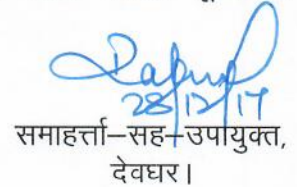 28/12/17
समाहर्त्ता–सह–उपायुक्त,
देवघर।